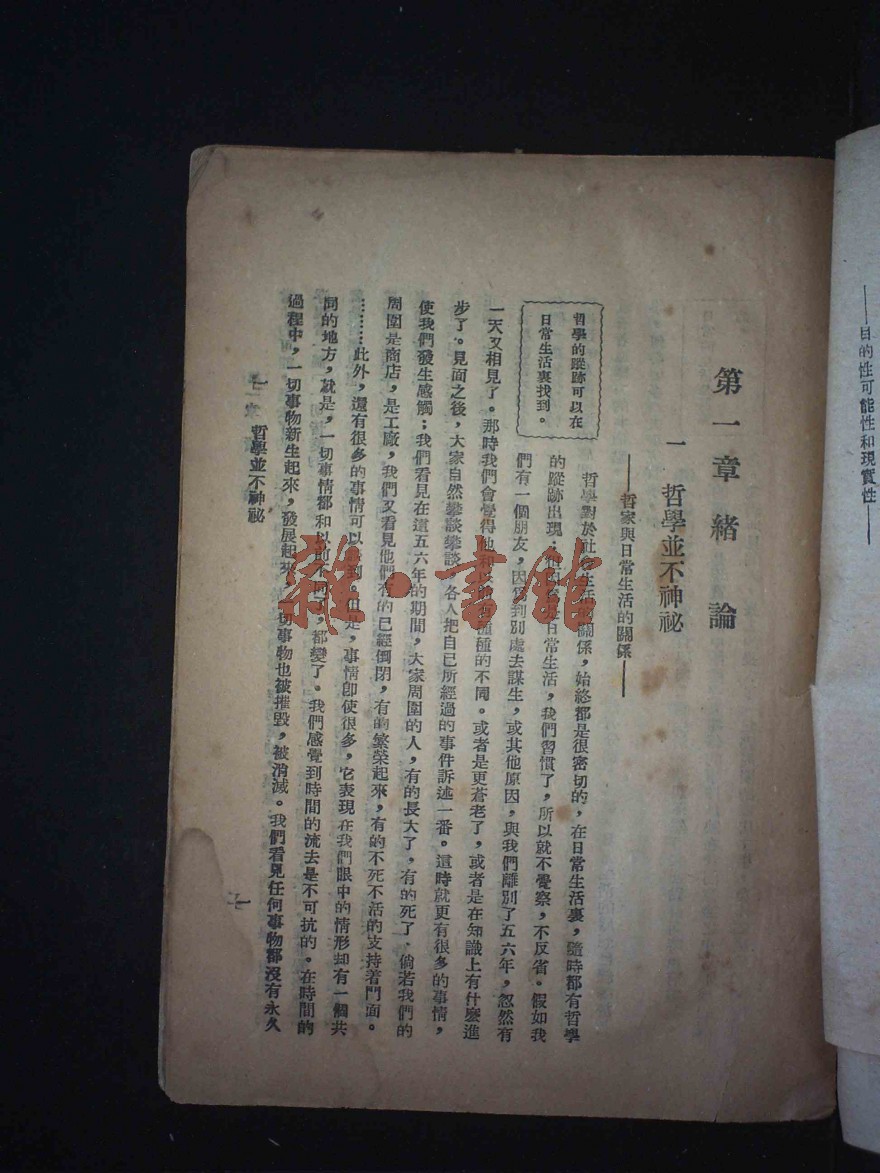 第一章 緒論
一 哲學並不神祕
——哲家與日常生活的關係——
哲學的蹤跡可以在
日常生活裏找到。
哲學對於社會生活的關係，始終都是很密切的，在日常生活裏，隨時都有哲學
的蹤跡出現，但因為是日常生活，我們習慣了，所以就不覺察，不反省。假如我
們有一個朋友，因為到別處去謀生，或其他原因，與我們離別了五六年，忽然有
一天又相見了。那時我們會覺得他和以前有種種的不同。或者是更蒼老了，或者是在知識上有什麼進
步了。見面之後，大家自然攀談攀談，各人把自己所經過的事件訴述一番。這時就更有很多的事情，
使我們發生感觸；我們看見在這五六年的期間，大家周圍的人，有的長大了，有的死了、倘若我們的
周圍是商店，是工廠，我們又看見他們有的已經倒閉，有的繁榮起來，有的不死不活的支持着門面。
………此外，還有很多的事情可以看到。但是，事情卽使很多，它表現在我們眼中的情形却有一個共
同的地方，就是，一切事情都和以前不同了，都變了。我們感覺到時間的流去是不可抗的。在時間的
過程中，一切事物新生起來，發展起來，一切事物也被摧毀，被消滅。我們看見任何事物都沒有永久
一 哲學並不神祕
一
——目的性可能性和現實性——
雜·書館